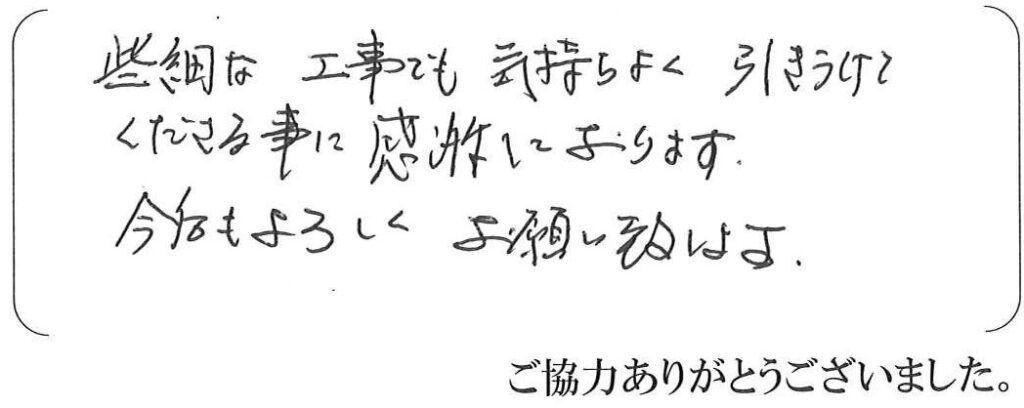 些細な 工事でも 気持ちよく 引きうけて
くださる事に 感激しております.
今后もよろしく お願い致します.
ご協力ありがとうございました。